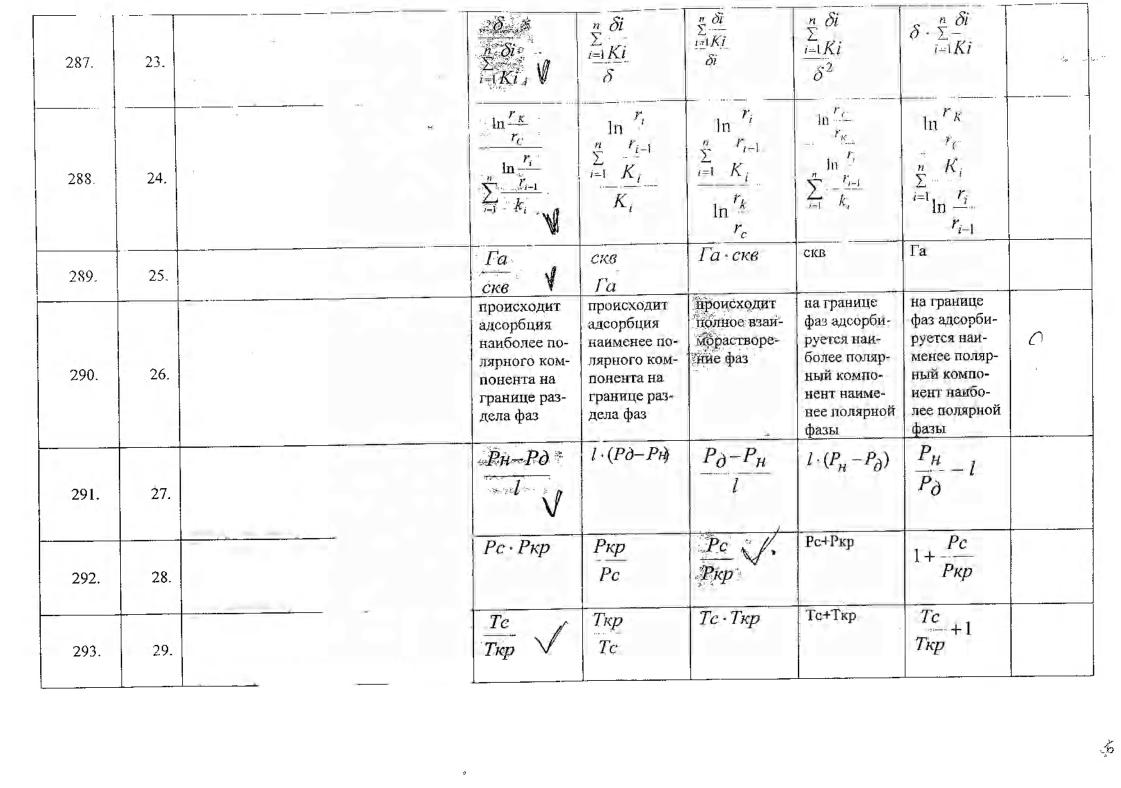 287. 23. δ / ∑ i=1 n δi / Ki ∑ i=1 n δi / Ki / δ ∑ i=1 n δi / Ki / δi ∑ i=1 n δi / Ki / δ² δ · ∑ i=1 n δi / Ki
288. 24. ln rK / rC / ∑ i=1 n ln ri / ri−1 / ki ∑ i=1 n ln ri / ri−1 / Ki / Ki ∑ i=1 n ln ri / ri−1 / Ki / ln rk / rc ln rC / rK ∑ i=1 n ln ri / ri−1 / ki ln rK / rC ∑ i=1 n Ki / ln ri / ri−1
289. 25. Га / скв скв / Га Га · скв скв Га
290. 26.
происходит
адсорбция
наиболее по-
лярного ком-
понента на
границе раз-
дела фаз
происходит
адсорбция
наименее по-
лярного ком-
понента на
границе раз-
дела фаз
происходит
полное взаи-
морастворе-
ние фаз
на границе
фаз адсорби-
руется наи-
более поляр-
ный компо-
нент наиме-
нее полярной
фазы
на границе
фаз адсорби-
руется наи-
менее поляр-
ный компо-
нент наибо-
лее полярной
фазы
291. 27. Рн−Рд / l l·(Рд−Рн) Рд−Рн / l l·(Рн−Рд) Рн / Рд − l
292. 28. Рс · Ркр Ркр / Рс Рс / Ркр Рс+Ркр 1+ Рс / Ркр
293. 29. Тс / Ткр Ткр / Тс Тс · Ткр Тс+Ткр Тс / Ткр +1